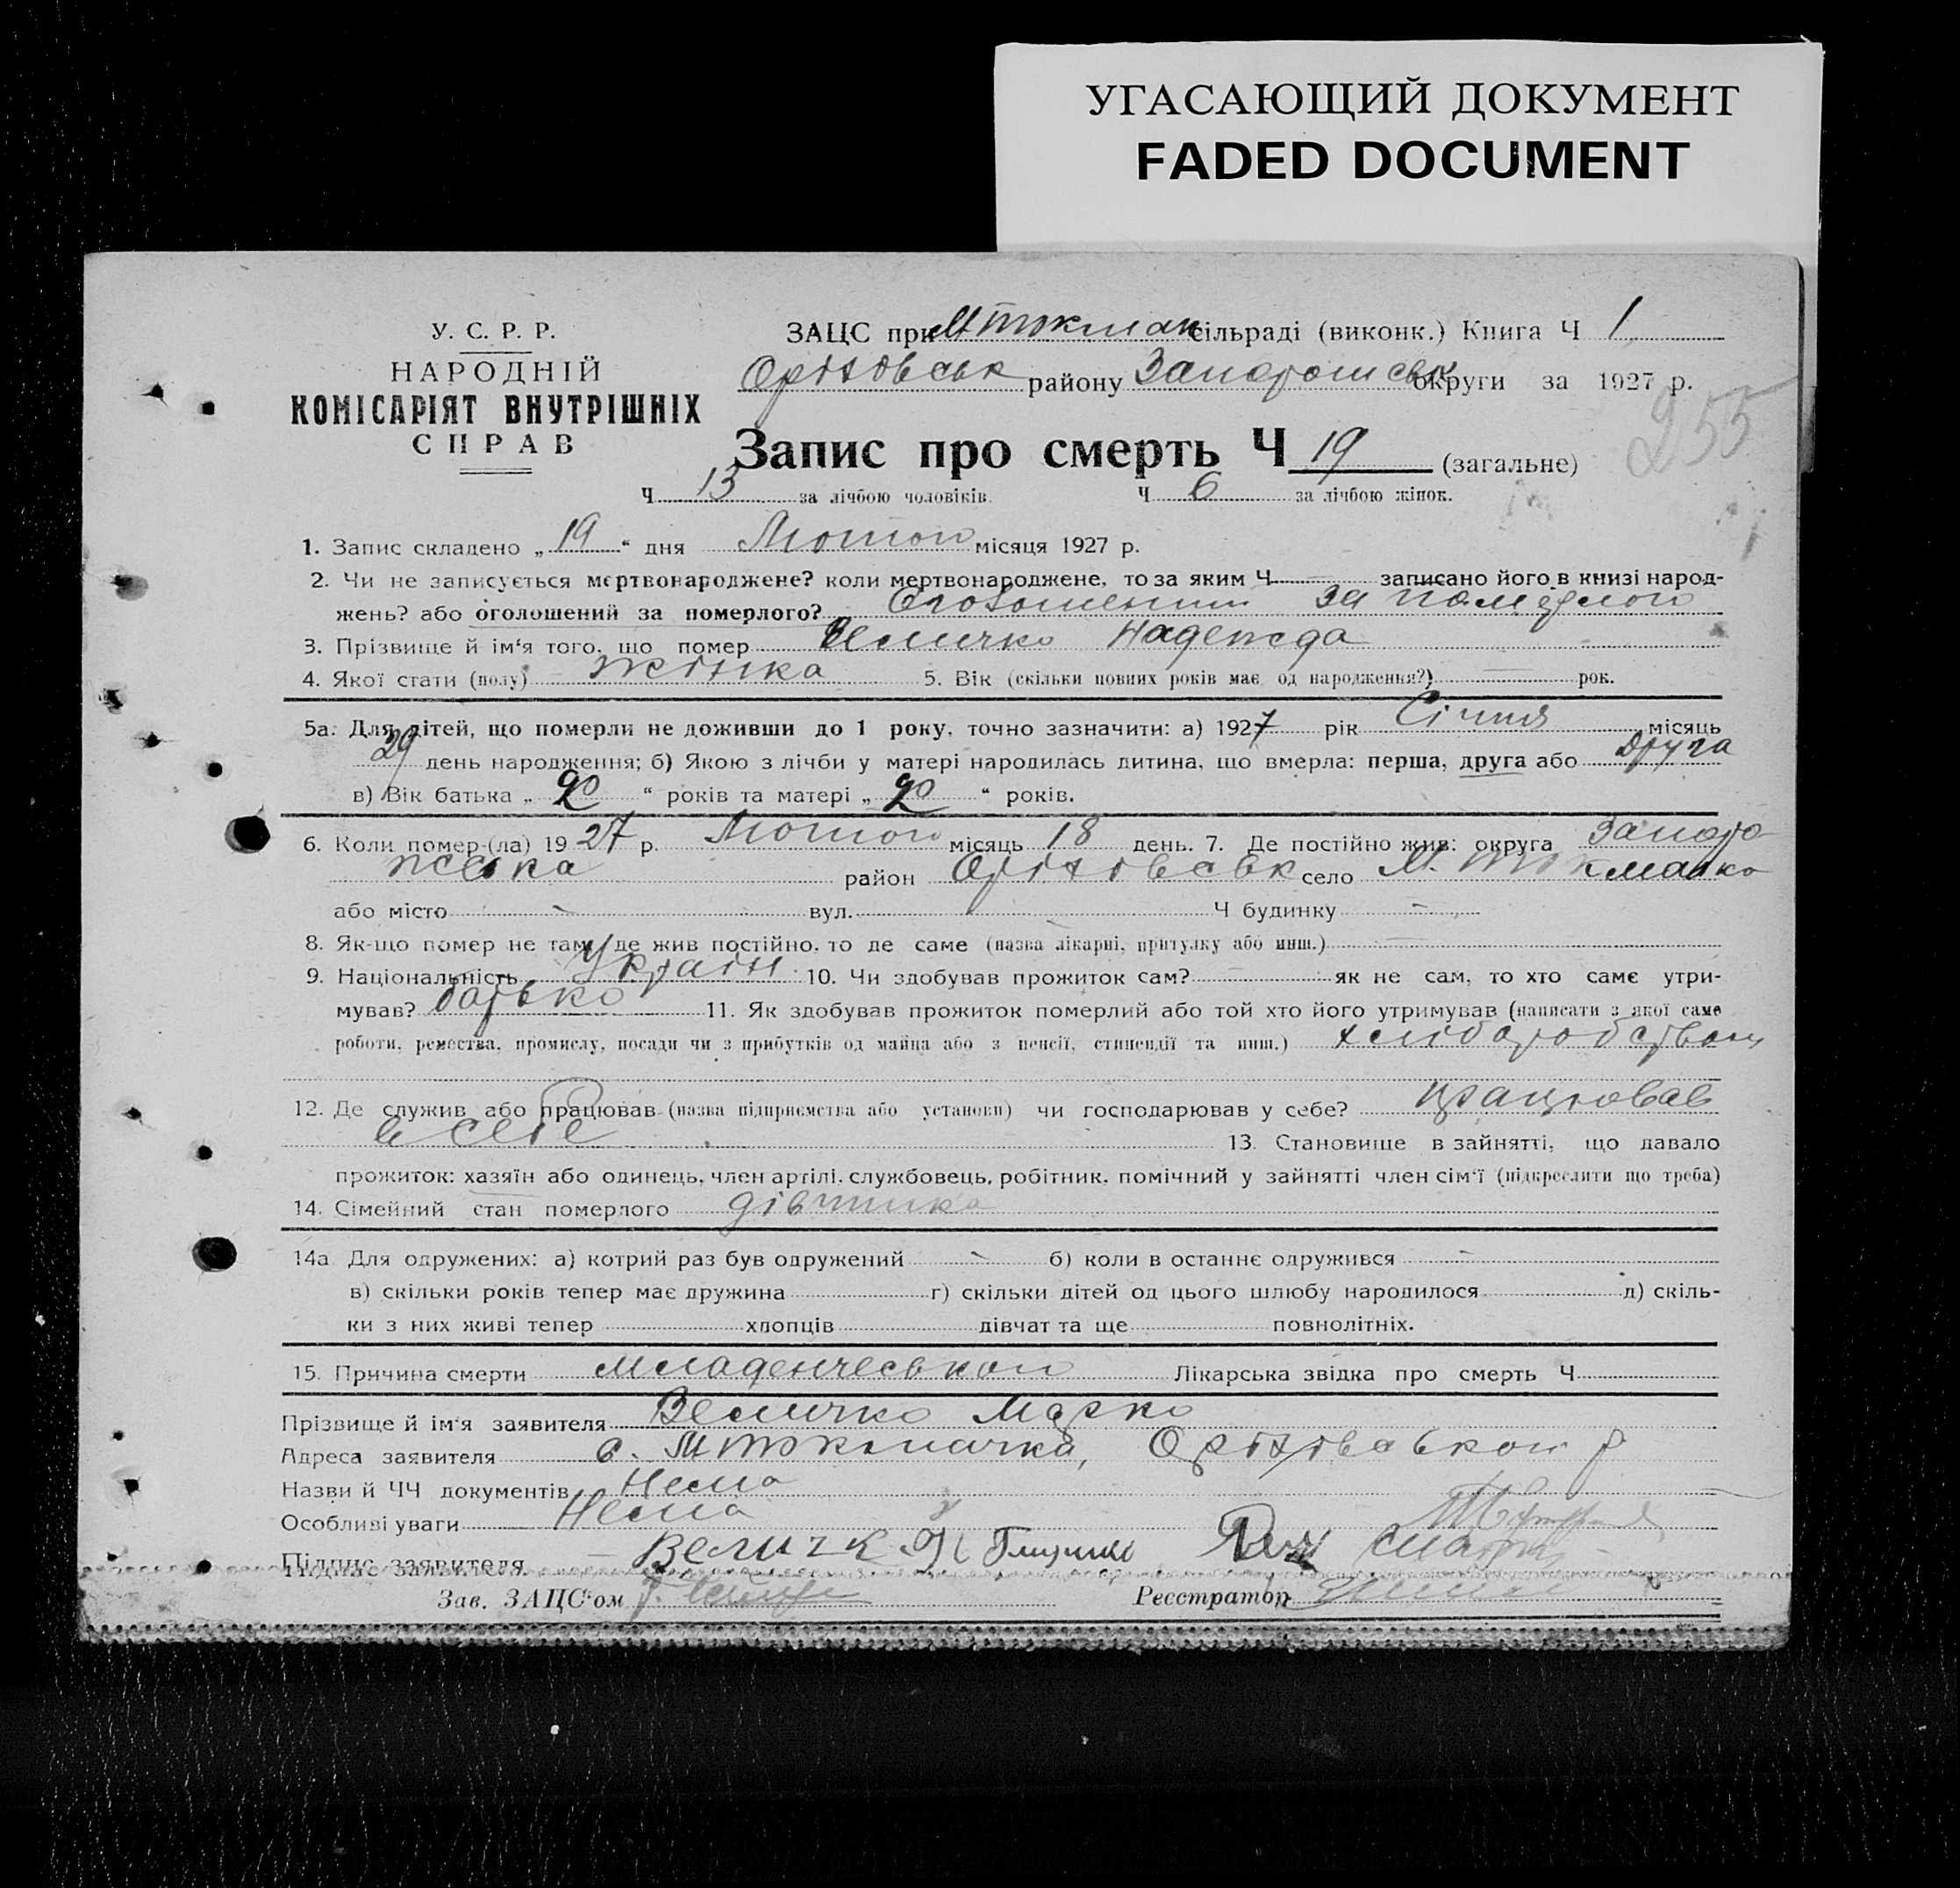 УГАСАЮЩИЙ ДОКУМЕНТ
FADED DOCUMENT
У. С. Р. Р.
НАРОДНІЙ
КОМІСАРІЯТ ВНУТРІШНІХ
СПРАВ
ЗАЦС при М Токмак сільраді (виконк.) Книга Ч 1
Оріховськ району Запорошськ округи за 1927 р.
255
Запис про смерть Ч 19 (загальне)
Ч 13 за лічбою чоловіків. Ч 6 за лічбою жінок.
1. Запис складено „ 19 “ дня Лютого місяця 1927 р.
2. Чи не записується мертвонароджене? коли мертвонароджене, то за яким Ч записано його в книзі народ-
жень? або оголошений за померлого? Оголошений за померлого
3. Прізвище й ім‘я того, що помер Величко Надежда
4. Якої стати (полу) жінка 5. Вік (скільки повних років має од народження?) рок.
5а. Для дітей, що померли не доживши до 1 року, точно зазначити: а) 1927 рік Січня місяць
29 день народження; б) Якою з лічби у матері народилась дитина, що вмерла: перша, друга або друга
в) Вік батька „ 20 “ років та матері „ 20 “ років.
6. Коли помер-(ла) 19 27 р. Лютого місяць 18 день. 7. Де постійно жив: округа Запоро-
жська район Оріховськ село М. Токмачка
або місто - вул. - Ч будинку -
8. Як-що помер не там, де жив постійно, то де саме (назва лікарні, притулку або инш.)
9. Національність Україн 10. Чи здобував прожиток сам? - як не сам, то хто саме утри-
мував? батько 11. Як здобував прожиток померлий або той хто його утримував (написати з якої саме
роботи, ремества, промислу, посади чи з прибутків од майна або з пенсії, стипендії та инш.) хліборобством
12. Де служив або працював (назва підприємства або установи) чи господарював у себе? працював
в себе 13. Становище в зайнятті, що давало
прожиток: хазяїн або одинець, член артілі, службовець, робітник, помічний у зайнятті член сім‘ї (підкреслити що треба)
14. Сімейний стан померлого дівчинка
14а Для одружених: а) котрий раз був одружений - б) коли в останнє одружився -
в) скільки років тепер має дружина г) скільки дітей од цього шлюбу народилося д) скіль-
ки з них живі тепер хлопців дівчат та ще повнолітніх.
15. Причина смерти младенческои Лікарська звідка про смерть Ч
Прізвище й ім‘я заявителя Величко Марко
Адреса заявителя с. М Токмачка, Оріхівськои р
Назви й ЧЧ документів Нема
Особливі уваги Нема
Підпис заявителя Величк
Зав. ЗАЦС‘ом Реєстратор